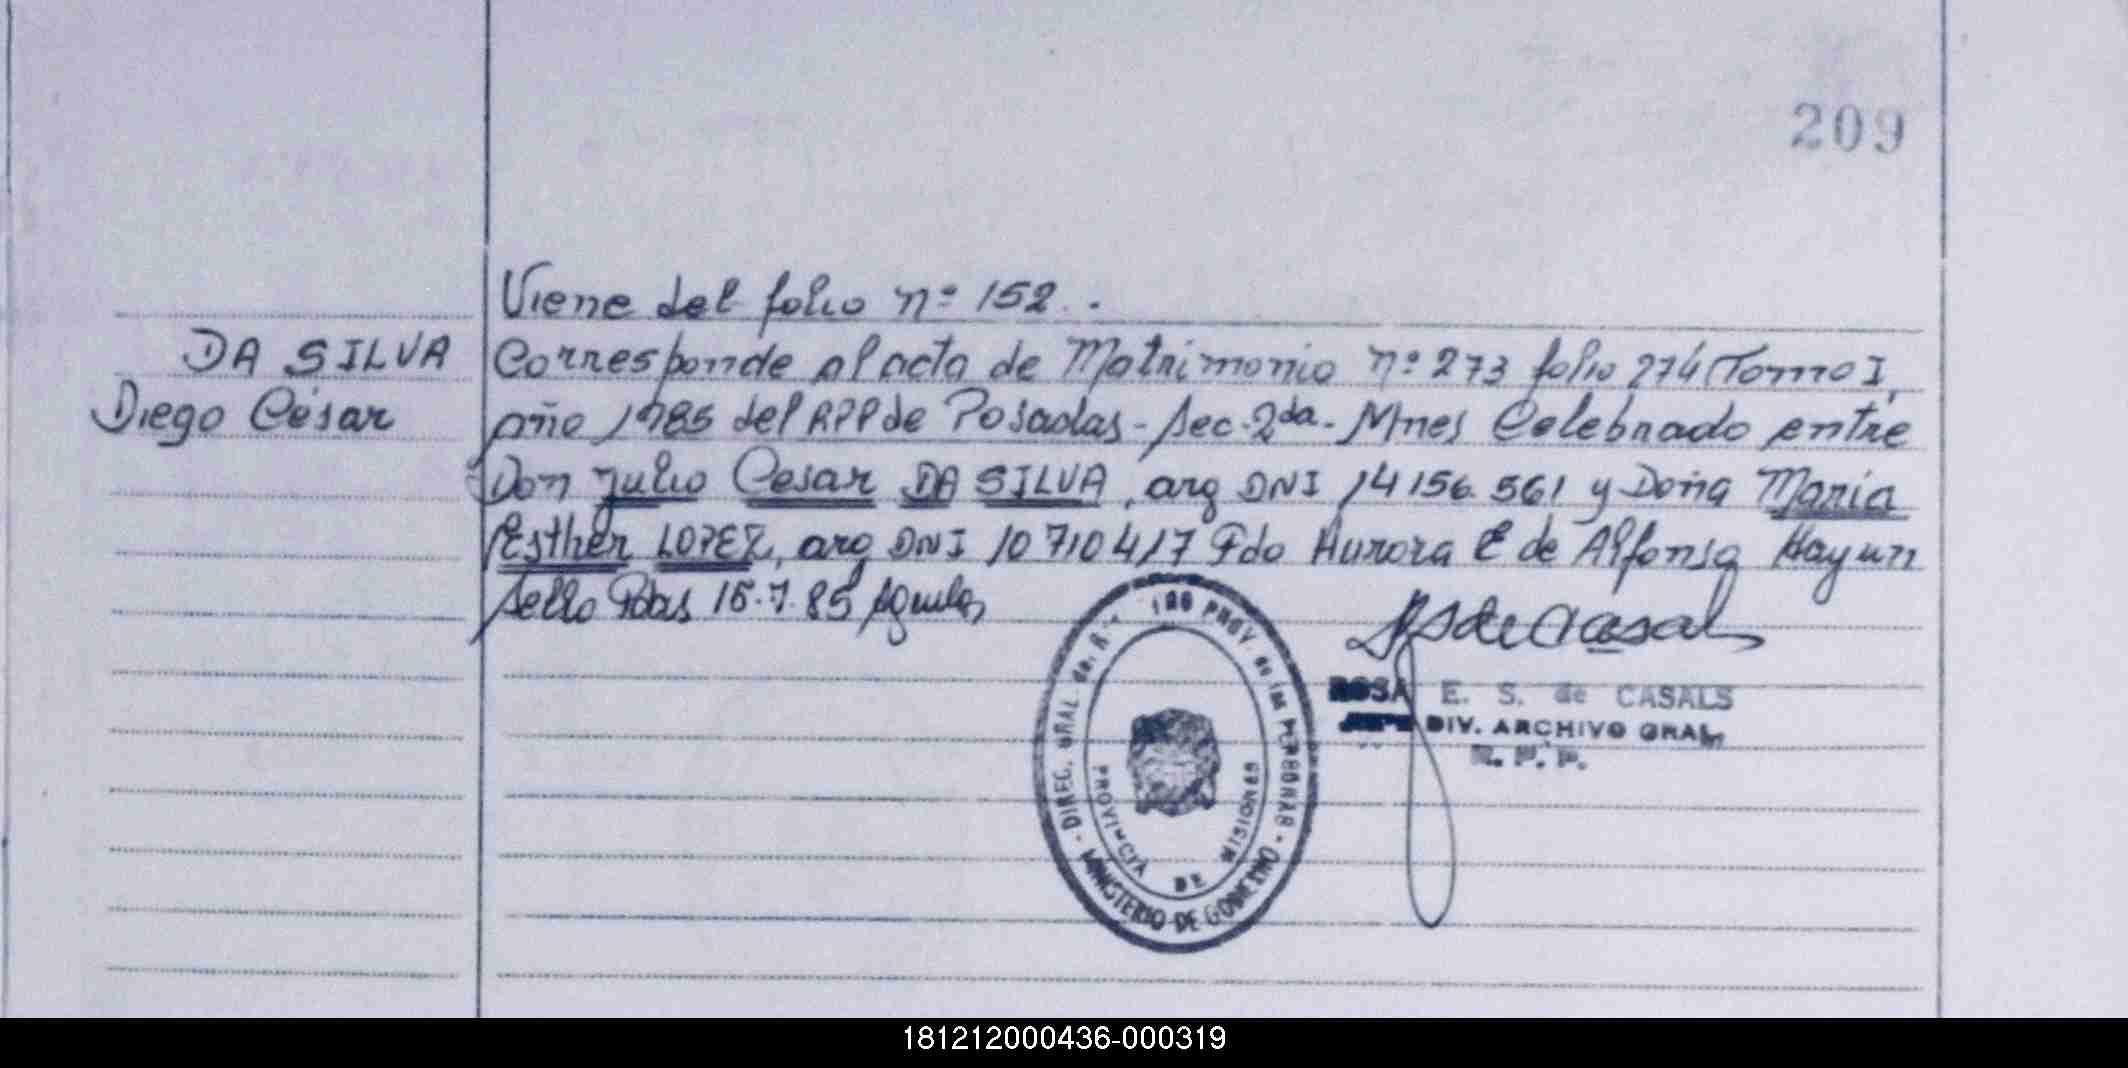 209
Viene del folio nº 152.
DA SILVA
Diego César
Corresponde al acta de Matrimonio nº 273 folio 274 Tomo I,
año 1985 del RPP de Posadas - Sec. 2da. Mnes Celebrado entre
Don Julio Cesar DA SILVA, arg DNI 14156.561 y Doña Maria
Esther LOPEZ, arg DNI 10710417 Fdo Aurora E de Alfonso Hay un
sello Pdas 15.7.85
ROSA E. S. de CASALS
JEFE DIV. ARCHIVO GRAL.
R. P. P.
DIREC. GRAL. de PROV. de las PERSONAS
MINISTERIO DE GOBIERNO
PROVINCIA DE MISIONES
181212000436-000319